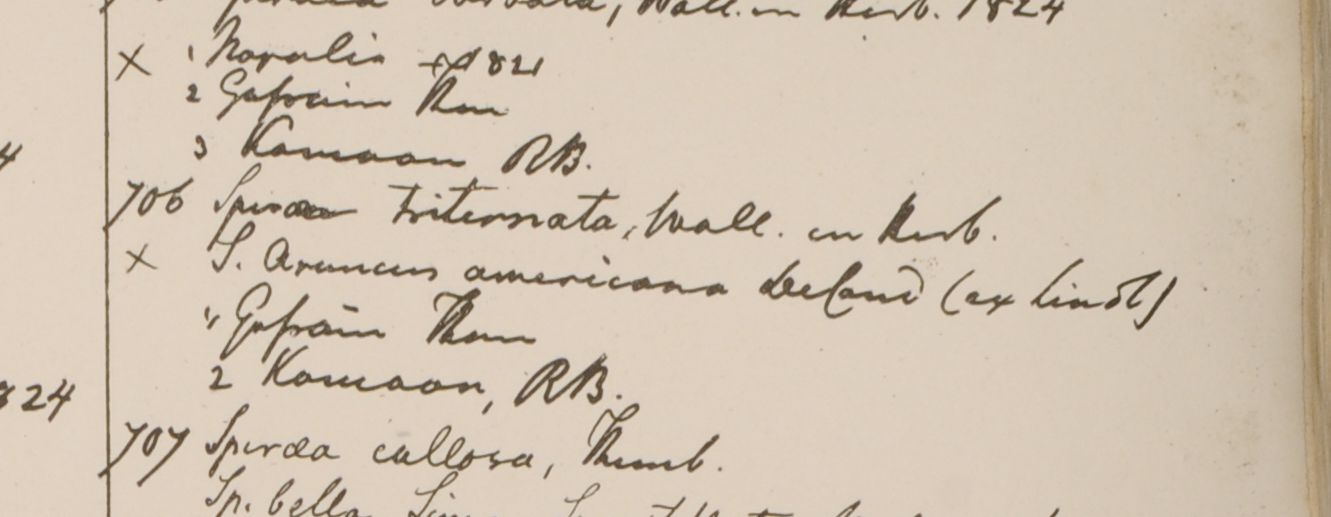 barbata, Wall. in Herb. 1824
4
x 1 Napalia 1821
2 Gosain Than
3 Kamaon RB.
706 Spiraea triternata, Wall. in Herb.
x S. Aruncus americana DeCand (ex Lindl)
1 Gosain Than
824
2 Kamaon, RB.
707 Spiraea callosa, Thunb.
Sp. bella